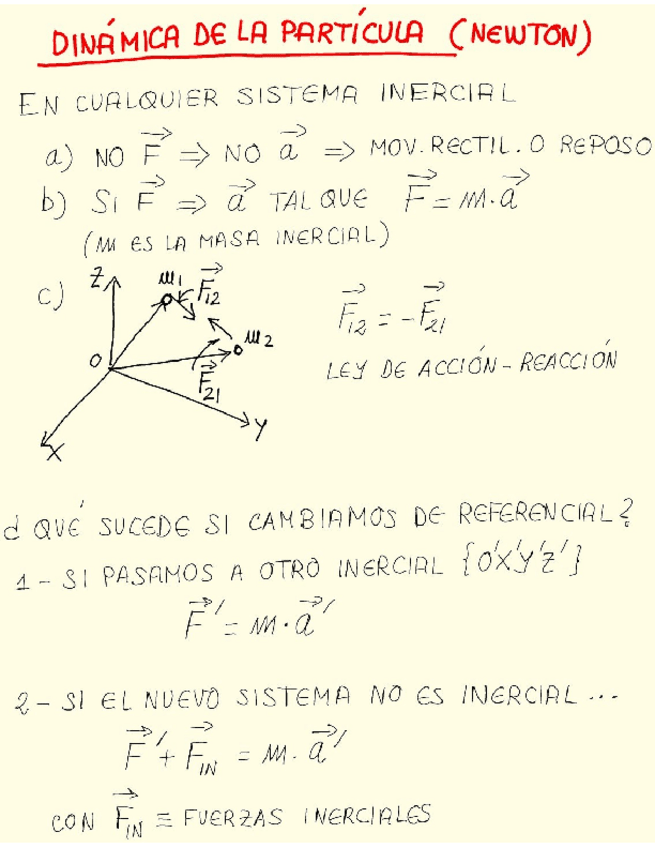 DINÁMICA DE LA PARTÍCULA (NEWTON)
EN CUALQUIER SISTEMA INERCIAL
a) NO F⃗ ⇒ NO a⃗ ⇒ MOV. RECTIL. O REPOSO
b) SI F⃗ ⇒ a⃗ TAL QUE F⃗ = m·a⃗
(m ES LA MASA INERCIAL)
c) Z m1 F⃗12
F⃗12 = -F⃗21
O m2
F⃗21
LEY DE ACCIÓN-REACCIÓN
Y
X
¿ QUÉ SUCEDE SI CAMBIAMOS DE REFERENCIAL?
1 - SI PASAMOS A OTRO INERCIAL {O'X'Y'Z'}
F⃗' = m·a⃗'
2 - SI EL NUEVO SISTEMA NO ES INERCIAL...
F⃗' + F⃗IN = m·a⃗'
CON F⃗IN ≡ FUERZAS INERCIALES